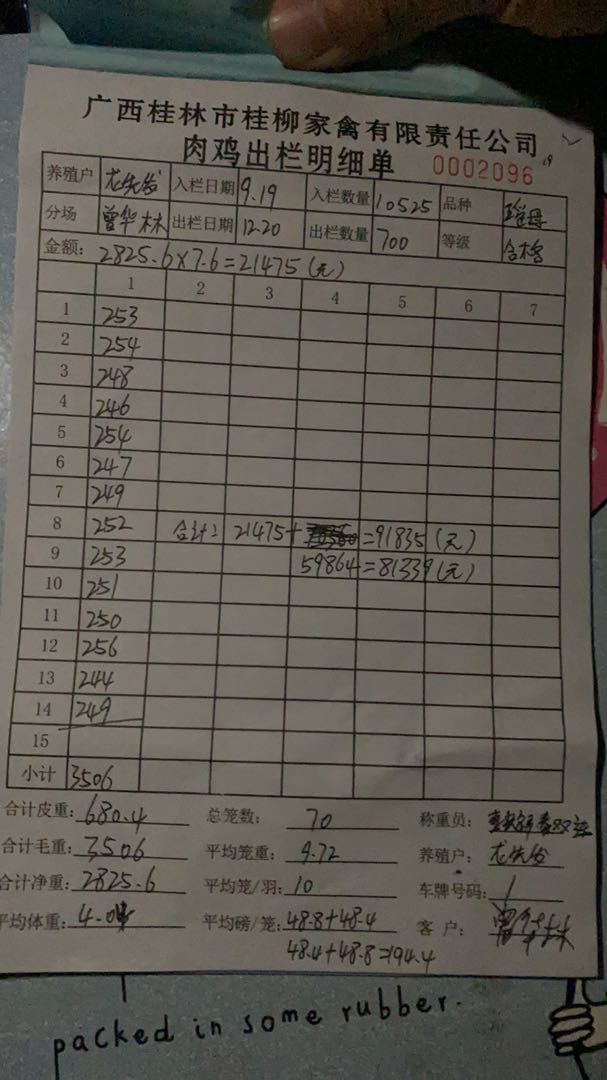 广西桂林市桂柳家禽有限责任公司
肉鸡出栏明细单 0002096
养殖户 龙先发 入栏日期 9.19 入栏数量 10525 品种
分场 曾华林 出栏日期 12.20 出栏数量 700 等级 合格
金额: 2825.6×7.6=21475(元)
1 2 3 4 5 6 7
1 253
2 254
3 248
4 246
5 254
6 247
7 249
8 252 合计: 21475+ =91835(元)
9 253 59864=81339(元)
10 251
11 250
12 256
13 244
14 249
15
小计 3506
合计皮重: 680.4 总笼数: 70 称重员:
合计毛重: 3506 平均笼重: 9.72 养殖户: 龙先发
合计净重: 2825.6 平均笼/羽: 10 车牌号码: 1
平均体重: 4.04 平均磅/笼: 48.8+48.4 客户: 曾华林
48.4+48.8=194.4
packed in some rubber.